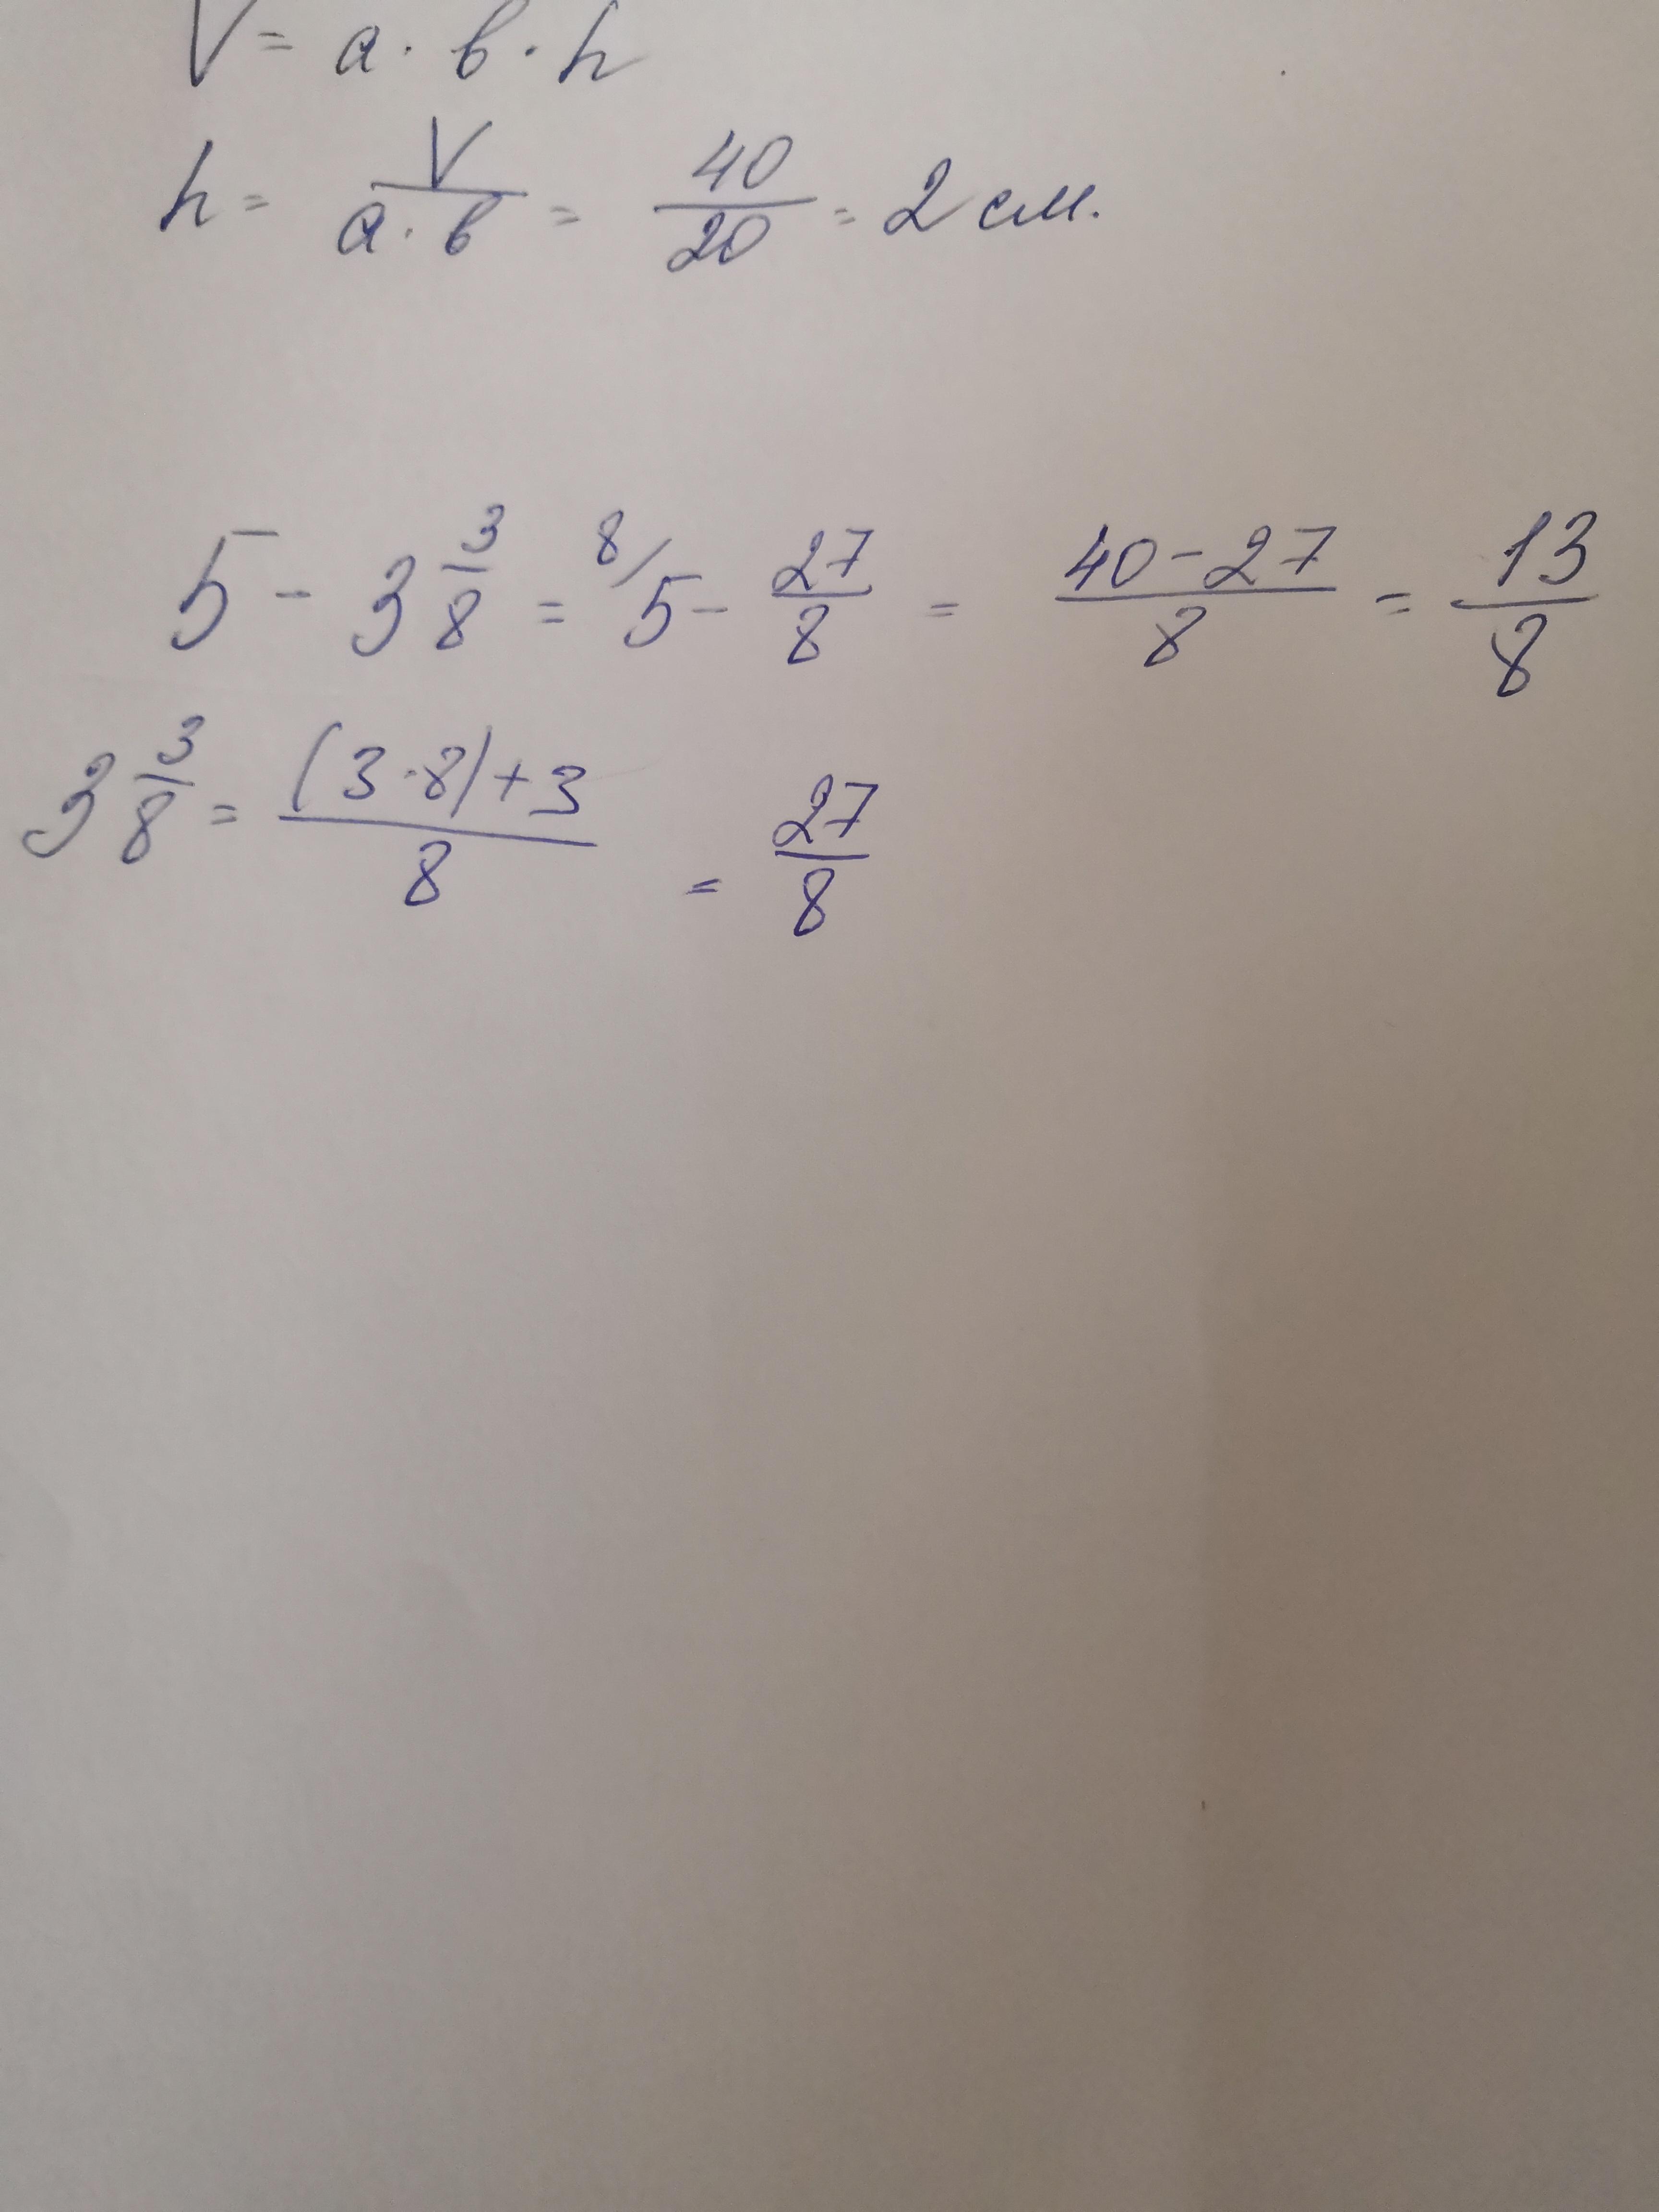 V = a · b · h
h = V/(a · b) = 40/20 = 2 см.
5 - 3 3/8 = 8/5 - 27/8 = (40-27)/8 = 13/8
3 3/8 = ((3·8)+3)/8 = 27/8